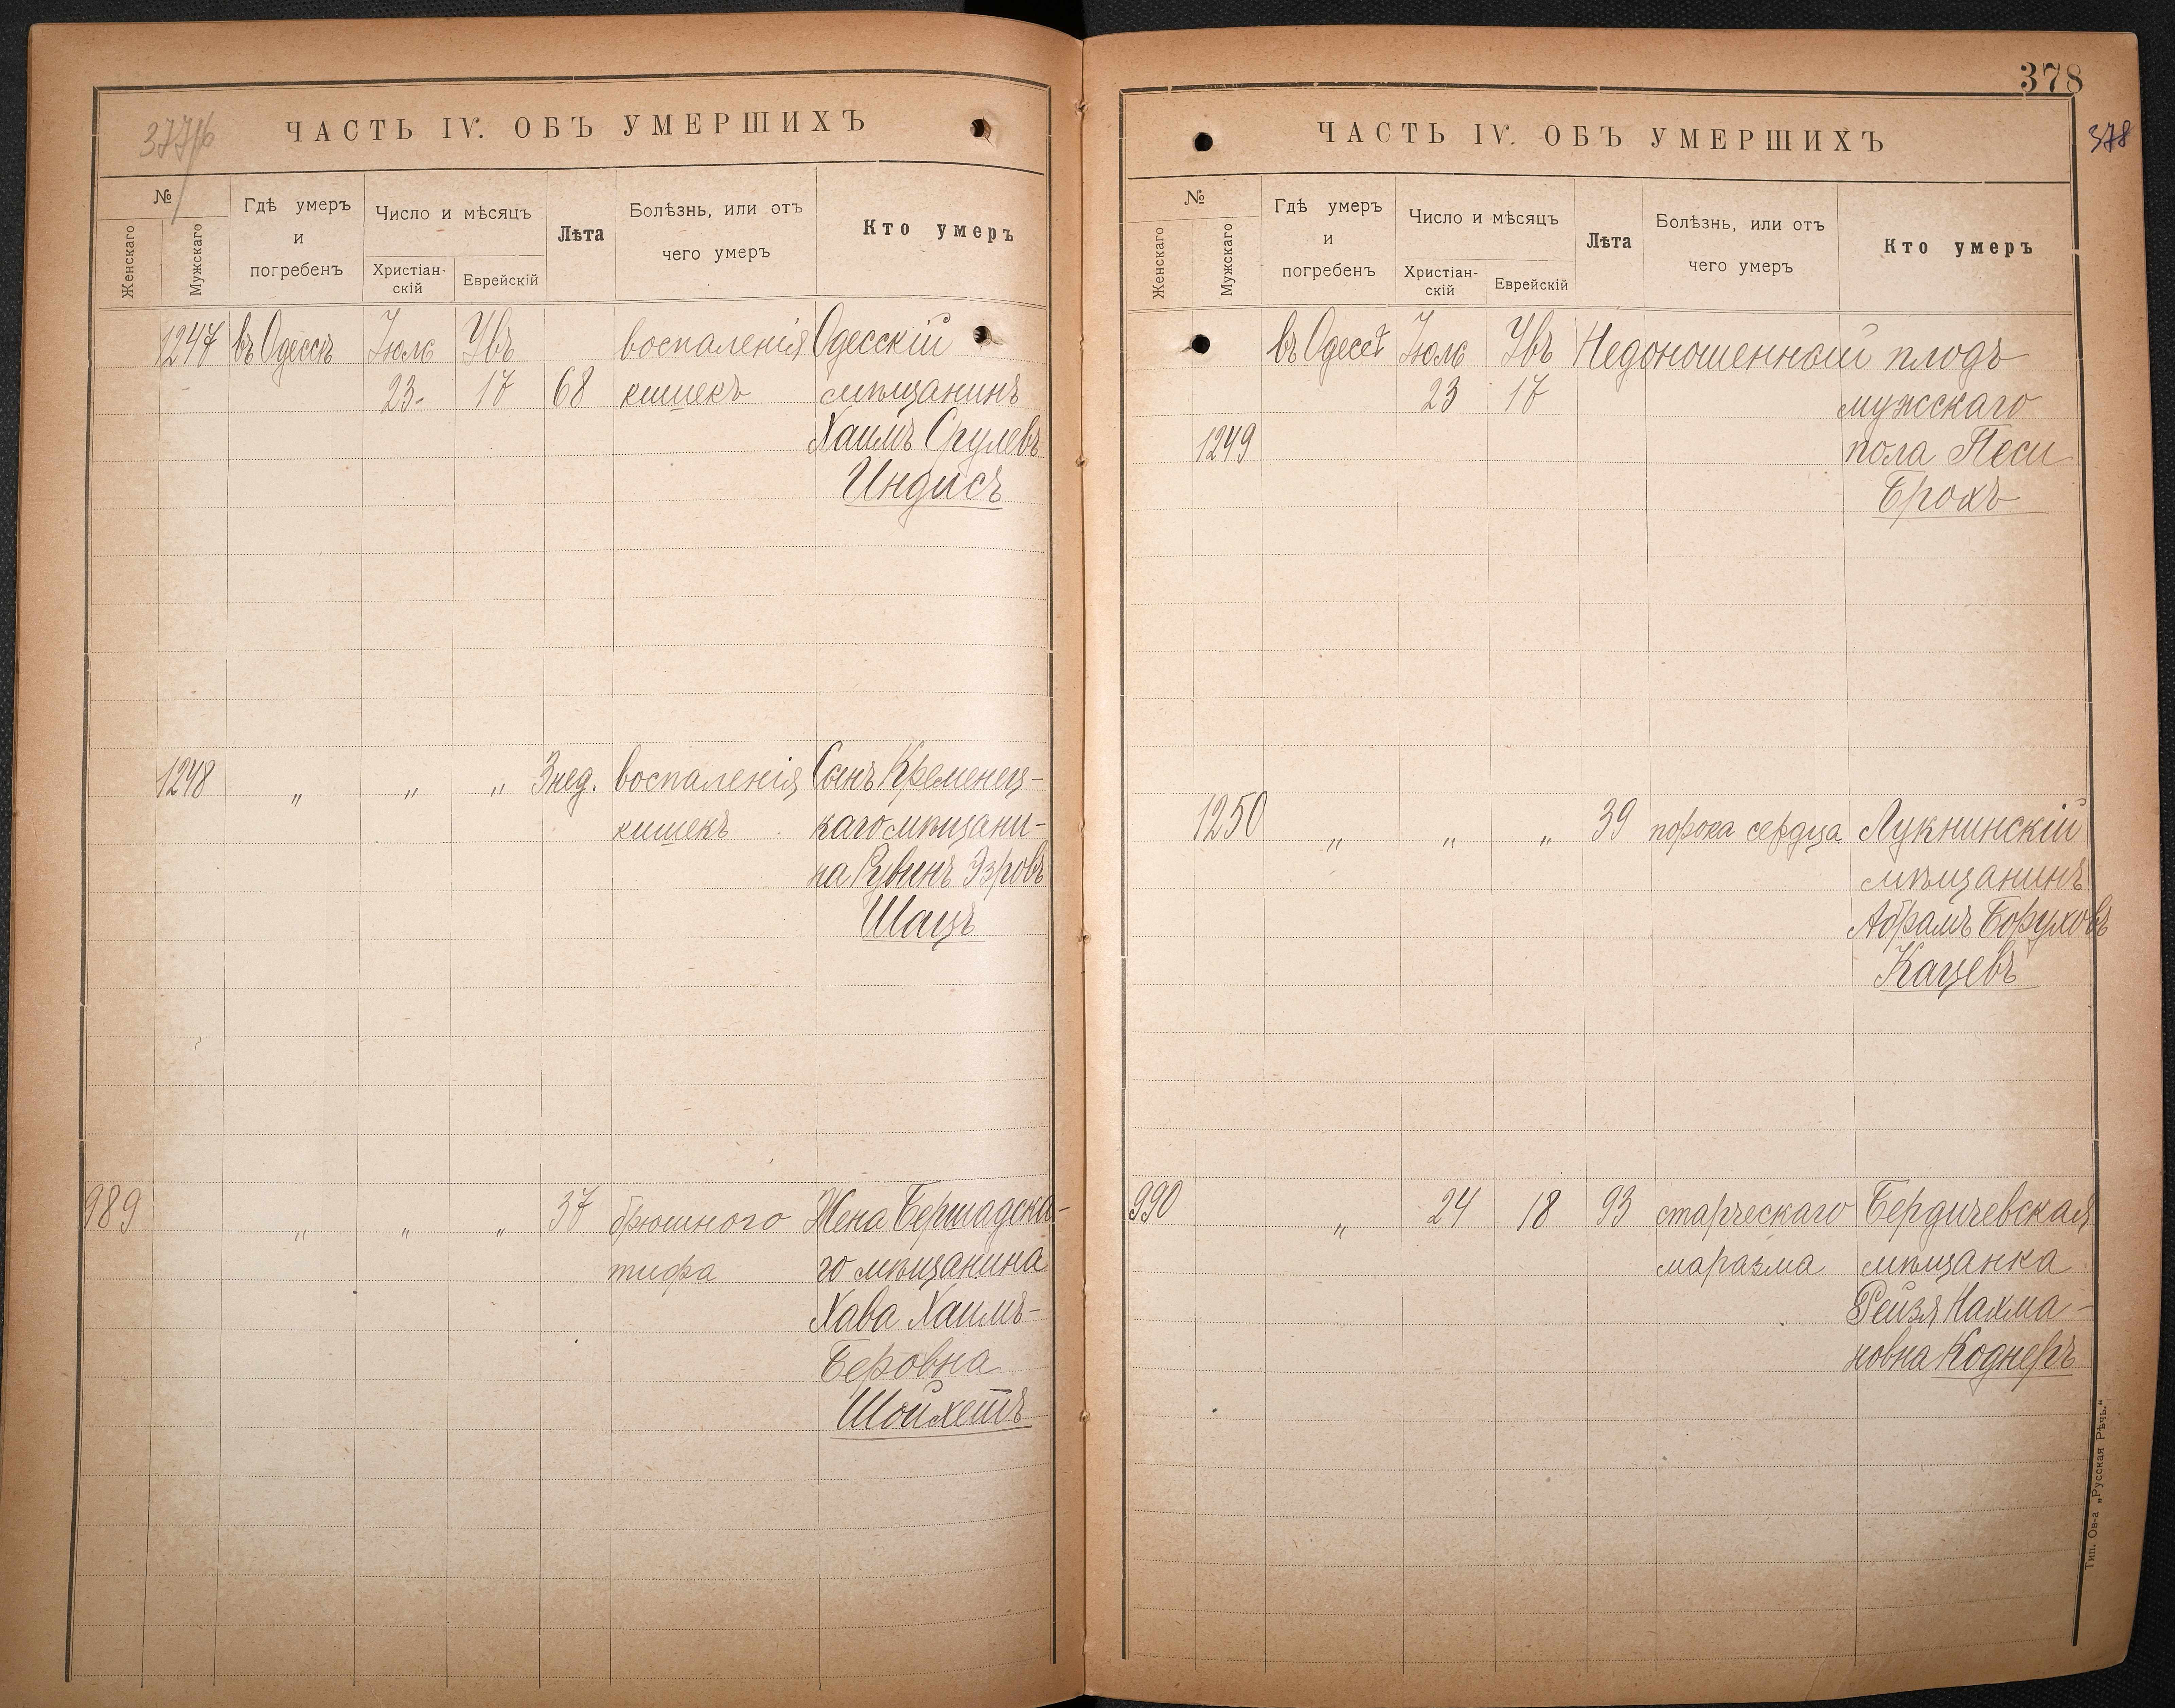 377/б
ЧАСТЬ IV. ОБЪ УМЕРШИХЪ
№
Женскаго
Мужскаго
Гдѣ умеръ
и
погребенъ
Число и мѣсяцъ
Христіан-
скій
Еврейскій
Лѣта
Болѣзнь, или отъ
чего умеръ
Кто умеръ
1247 въ Одессѣ Іюль Ѳвъ воспаленія Одесскій
23. 17 68 кишекъ мѣщанинъ
Хаимъ Срулевъ
Индисъ
1248 „ „ „ 3 нед. воспаленія Сынъ Кременец-
кишекъ каго мѣщани-
на Рувинъ Эзровъ
Шацъ
989 „ „ „ 37 брюшного Жена Бершадска-
тифа го мѣщанина
Хава Хаимъ-
Беровна
Шойхетъ
378
378
ЧАСТЬ IV. ОБЪ УМЕРШИХЪ
№
Женскаго
Мужскаго
Гдѣ умеръ
и
погребенъ
Число и мѣсяцъ
Христіан-
скій
Еврейскій
Лѣта
Болѣзнь, или отъ
чего умеръ
Кто умеръ
въ Одессѣ Іюль Ѳвъ Недоношенный плодъ
23 17 мужскаго
1249 пола Песи
Брохъ
1250 „ „ „ 39 порока сердца Лукнинскій
мѣщанинъ
Абрамъ Боруховъ
Кацевъ
990 „ 24 18 93 старческаго Бердичевская
маразма мѣщанка
Рейзя Нахма-
новна Коднеръ
Тип. Ов-а „Русская Рѣчь.“